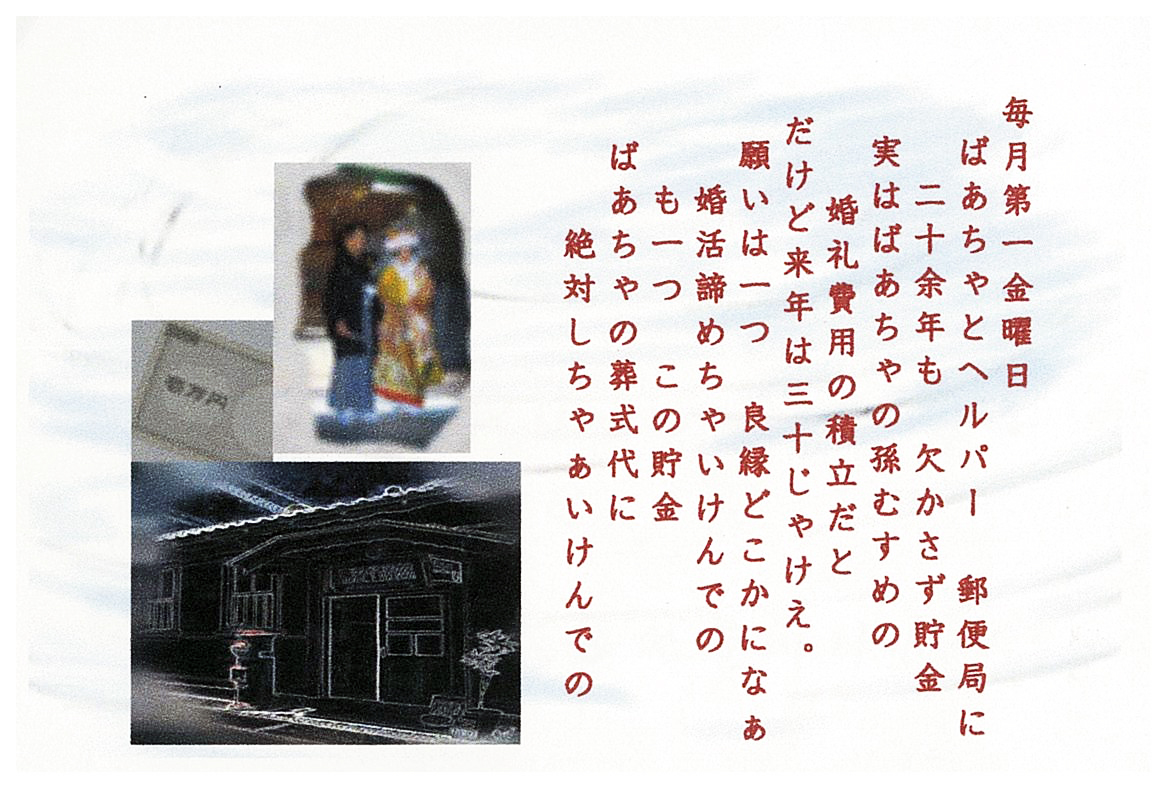 毎月第一金曜日
ばあちゃとヘルパー 郵便局に
二十余年も 欠かさず貯金
実はばあちゃの孫むすめの
婚礼費用の積立だと
だけど来年は三十じゃけえ。
願いは一つ 良縁どこかになぁ
婚活諦めちゃいけんでの
も一つ この貯金
ばあちゃの葬式代に
絶対しちゃぁいけんでの
壱万円